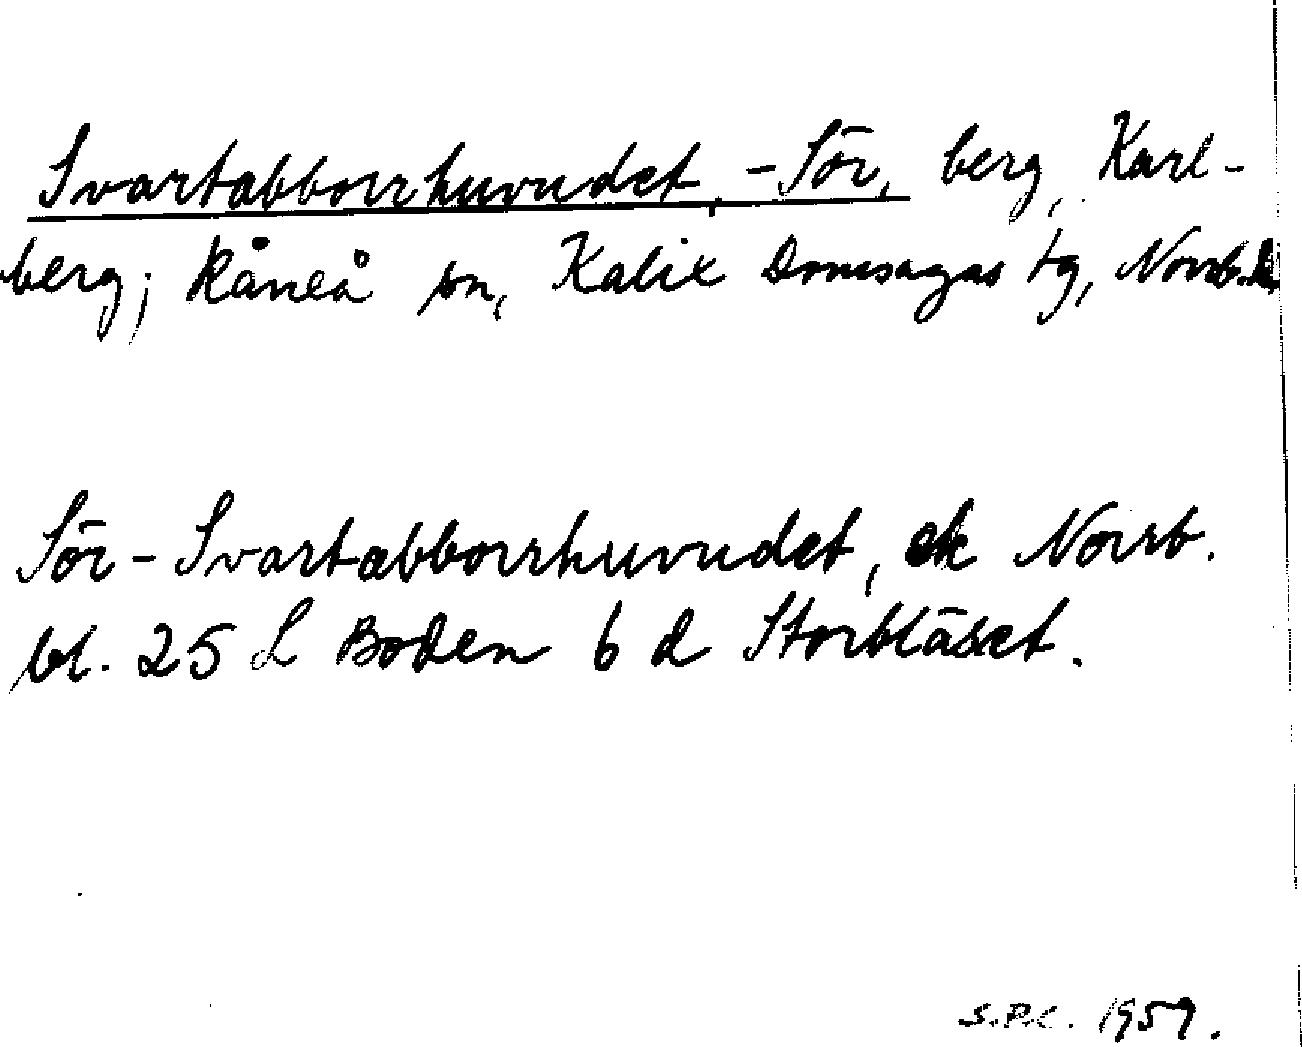 Svartabborrhuvudet, -Sör, berg, Karl-
berg; Råneå sn, Kalix Domsagas tg, Norrb. l.
Sör-Svartabborrhuvudet, ek Norrb.
bl. 25 L Boden 6 d Storblåset.
S.P.C. 1959.